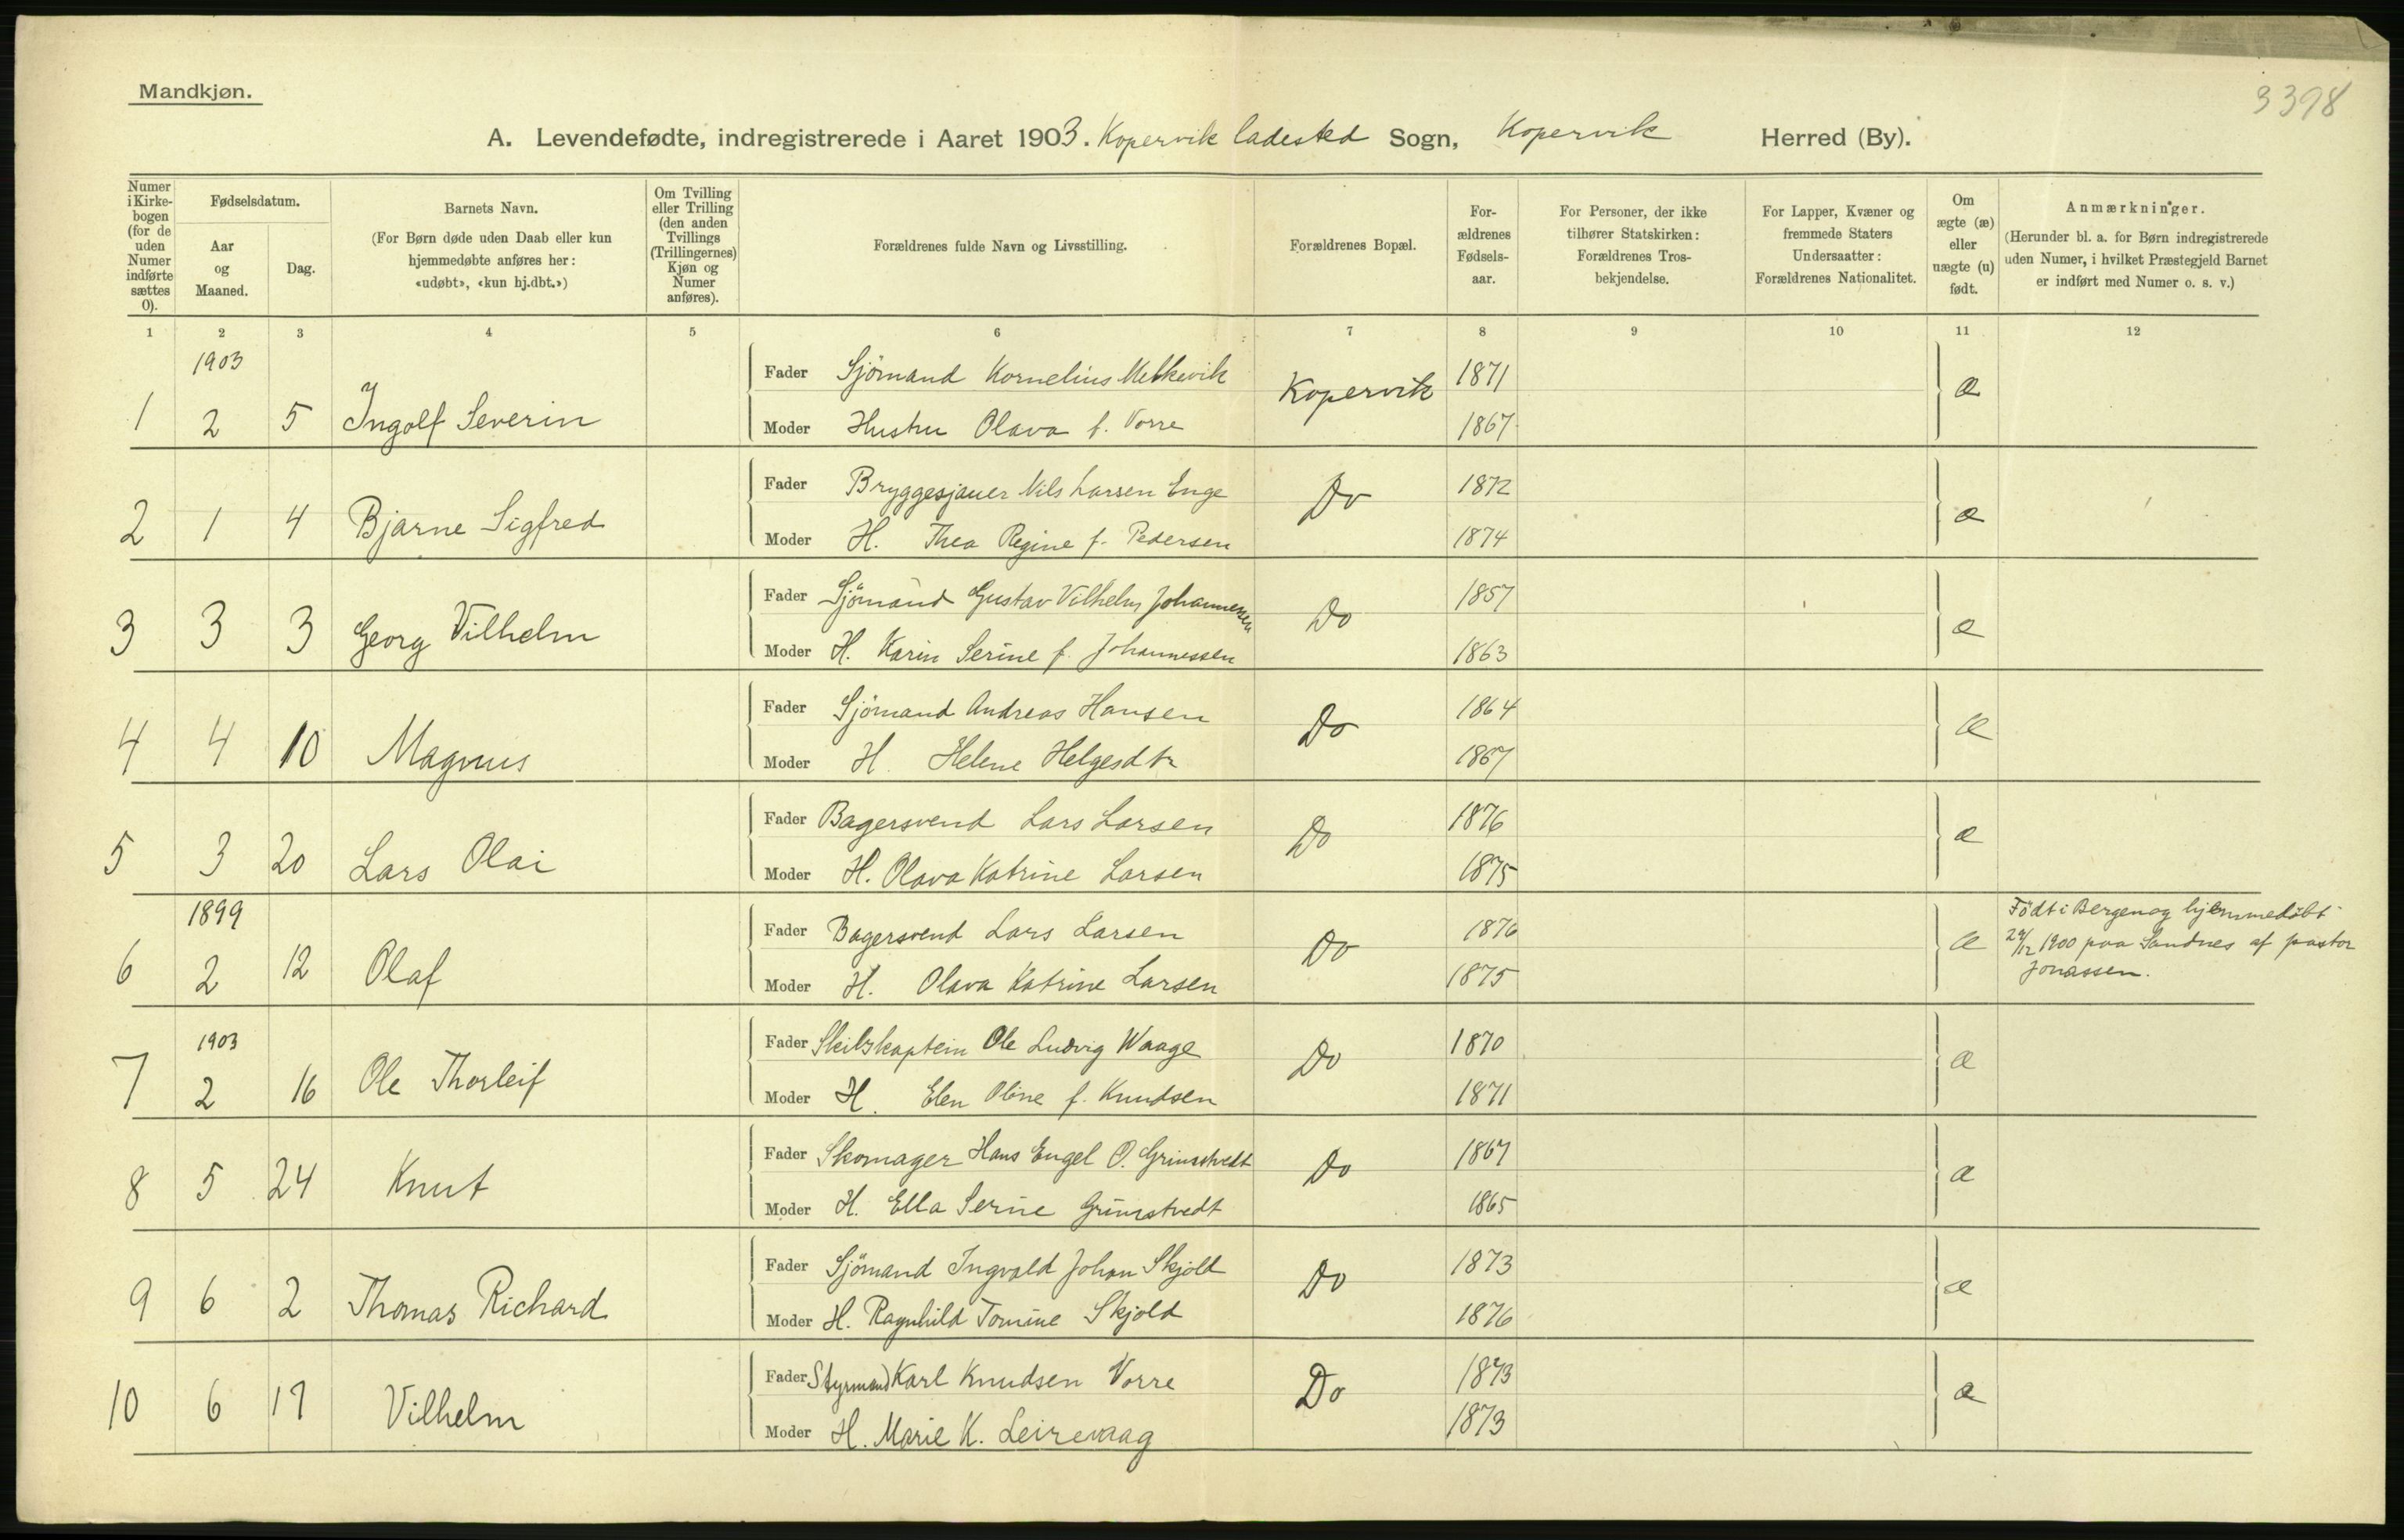 Mandkjøn.
3398
A. Levendefødte, indregistrerede i Aaret 1903. Kopervik ladested Sogn, Kopervik Herred (By).
Numer i Kirke-bogen (for de uden Numer indførte sættes 0).
Fødselsdatum.
Aar og Maaned.
Dag.
Barnets Navn.
(For Børn døde uden Daab eller kun hjemmedøbte anføres her: «udøbt», «kun hj.dbt.»)
Om Tvilling eller Trilling (den anden Tvillings (Trillingernes) Kjøn og Numer anføres).
Forældrenes fulde Navn og Livsstilling.
Forældrenes Bopæl.
For-ældrenes Fødsels-aar.
For Personer, der ikke tilhører Statskirken: Forældrenes Tros-bekjendelse.
For Lapper, Kvæner og fremmede Staters Undersaatter: Forældrenes Nationalitet.
Om ægte (æ) eller uægte (u) født.
Anmærkninger.
(Herunder bl. a. for Børn indregistrerede uden Numer, i hvilket Præstegjeld Barnet er indført med Numer o. s. v.)
1 2 3 4 5 6 7 8 9 10 11 12
1903
Fader Sjömand Kornelius Melkevik Kopervik 1871 æ
1 2 5 Ingolf Severin Moder Hustru Olava f. Vorre 1867
Fader Bryggesjauer Nils Larsen Enge Do 1872 æ
2 1 4 Bjarne Sigfred Moder H. Thea Regine f. Pedersen 1874
Fader Sjömand Gustav Vilhelm Johannesen Do 1857 æ
3 3 3 Georg Vilhelm Moder H. Karin Serine f. Johannessen 1863
Fader Sjömand Andreas Hansen Do 1864 æ
4 4 10 Magnus Moder H. Helene Helgesdtr 1867
Fader Bagersvend Lars Larsen Do 1876 æ
5 3 20 Lars Olai Moder H. Olava Katrine Larsen 1875
1899
Fader Bagersvend Lars Larsen Do 1876 æ Födt i Bergen og hjemmedöbt
6 2 12 Olaf Moder H. Olava Katrine Larsen 1875 /12 1900 paa Sandnes af pastor
Jonassen.
1903
Fader Skibskaptein Ole Ludvig Waage Do 1870 æ
7 2 16 Ole Thorleif Moder H. Elen Oline f. Knudsen 1871
Fader Skomager Hans Engel O. Grimstvedt Do 1867 æ
8 5 24 Knut Moder H. Ella Serine Grimstvedt 1865
Fader Sjömand Ingvald Johan Skjold Do 1873 æ
9 6 2 Thomas Richard Moder H. Ragnhild Tomine Skjold 1876
Fader Styrmand Karl Knudsen Vorre Do 1873 æ
10 6 17 Vilhelm Moder H. Marie K. Leirevaag 1873